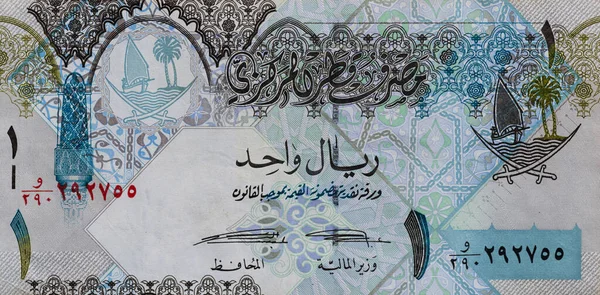 ١
مصرف قطر المركزي
ريال واحد
ورقة نقدية مضمونة القيمة بموجب القانون
١
و
٢٩٠ ٢٩٢٧٥٥
و
٢٩٠ ٢٩٢٧٥٥
١
١
وزير المالية
المحافظ